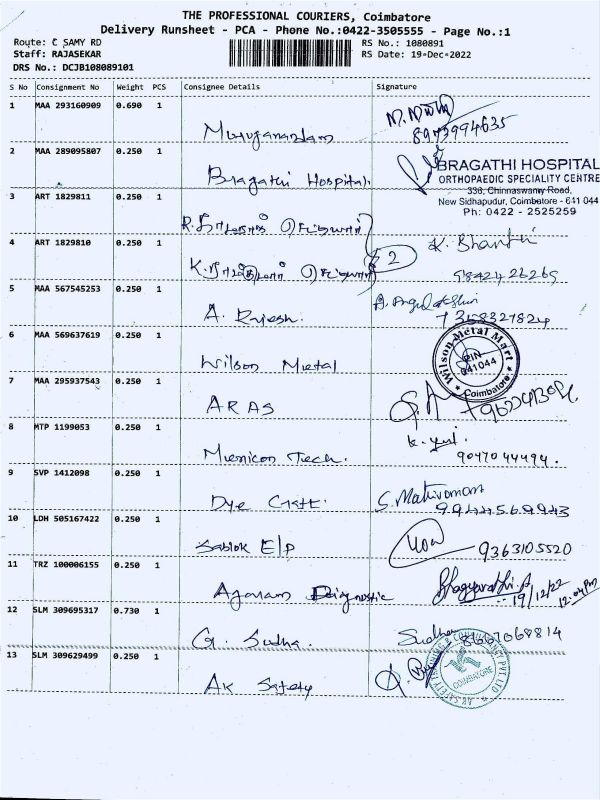 THE PROFESSIONAL COURIERS, Coimbatore
Delivery Runsheet - PCA - Phone No.:0422-3505555 - Page No.:1
Route: C SAMY RD RS No.: 1080891
Staff: RAJASEKAR RS Date: 19-Dec-2022
DRS No.: DCJB108089101
S No Consignment No Weight PCS Consignee Details Signature
1 MAA 293160909 0.690 1
Muruganandam 8973994635
2 MAA 289095807 0.250 1
Bragathi Hospital.
BRAGATHI HOSPITAL
ORTHOPAEDIC SPECIALITY CENTRE
336, Chinnaswamy Road,
New Sidhapudur, Coimbatore - 641 044
Ph: 0422 - 2525259
3 ART 1829811 0.250 1
4 ART 1829810 0.250 1
2
98424 26269
5 MAA 567545253 0.250 1
A. Rajesh. 7358321824
6 MAA 569637619 0.250 1
Wilson Metal
Wilson Metal Mart
PIN
641044
Coimbatore
7 MAA 295937543 0.250 1
ARAS
8 MTP 1199053 0.250 1
Tech. 9047044494.
9 SVP 1412098 0.250 1
Dye S. Mathivanan
9944569943
10 LDH 505167422 0.250 1
Sablok E/P 9363105520
11 TRZ 100006155 0.250 1
Agaram Diagnostic Bhagyarathi.A
19/12/22
12:04PM
12 SLM 309695317 0.730 1
G. Sudha. Sudha 8667068814
13 SLM 309629499 0.250 1
AK Safety
COIMBATORE